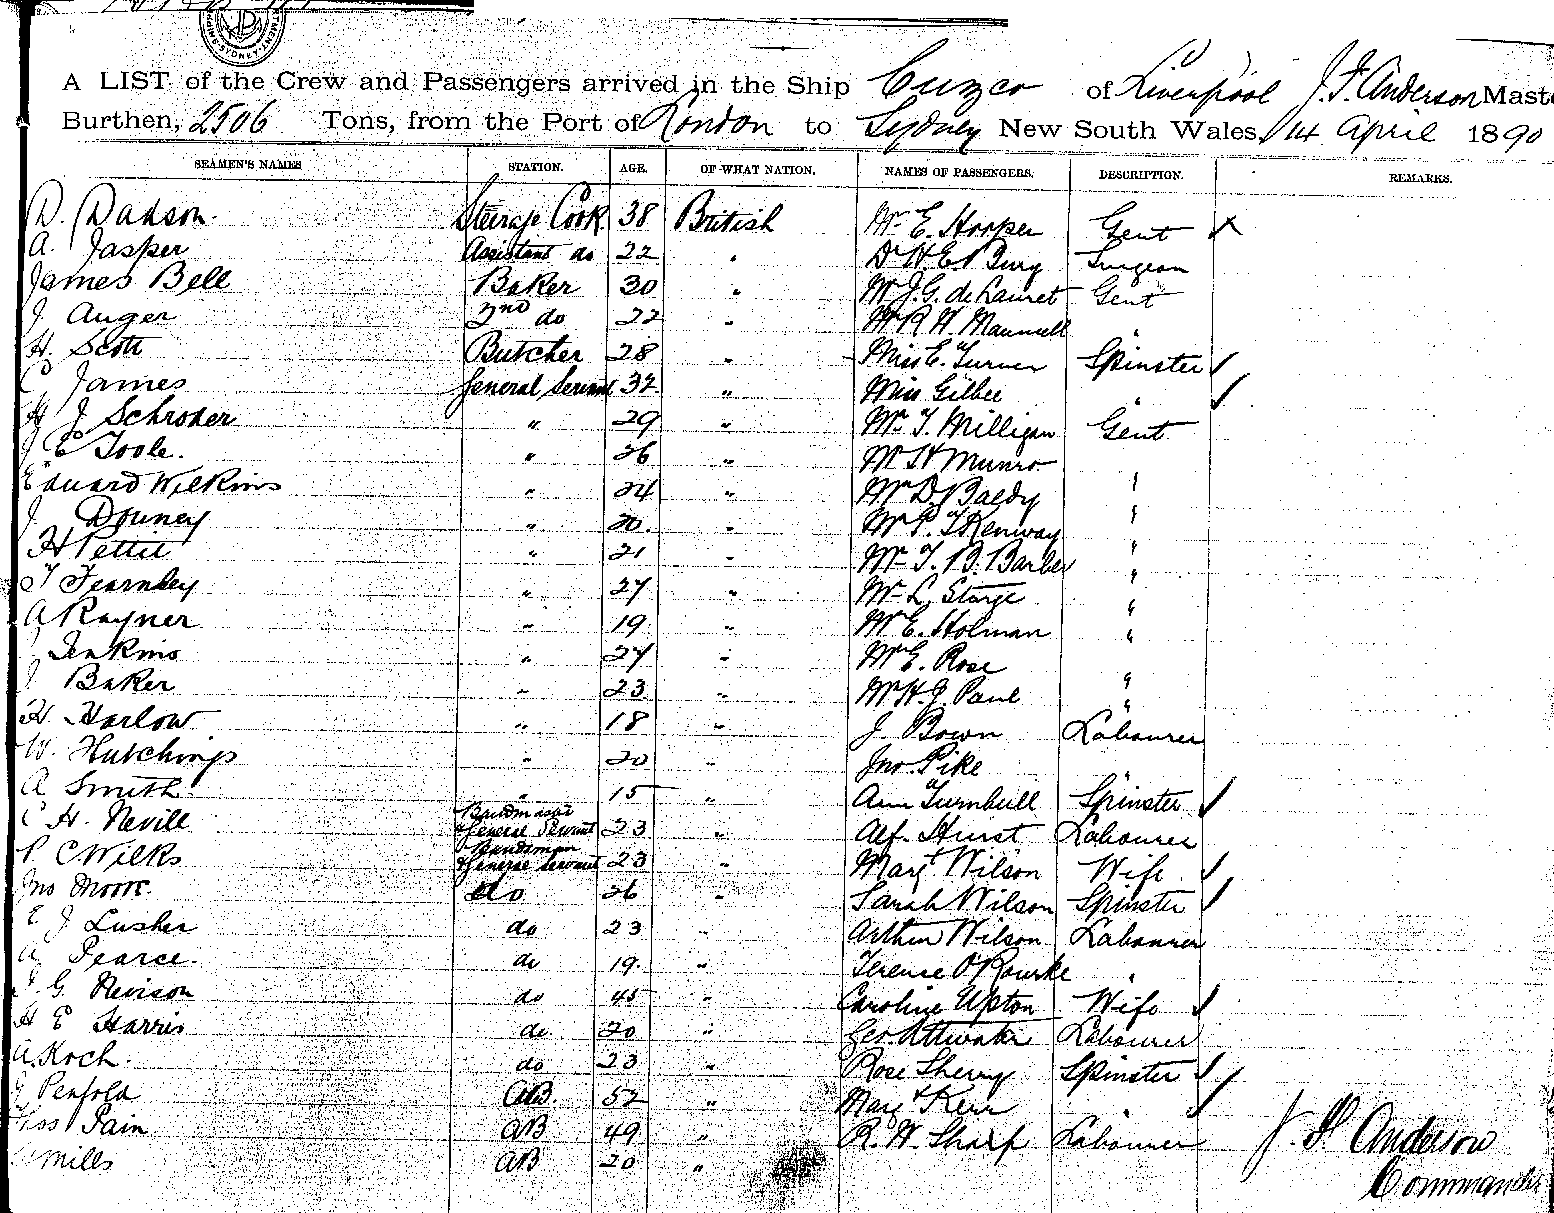 A LIST of the Crew and Passengers arrived in the Ship Cuzco of Liverpool J. F. Anderson Maste
Burthen, 2506 Tons, from the Port of London to Sydney New South Wales, 14 April 1890
SEAMEN'S NAMES STATION. AGE. OF WHAT NATION. NAMES OF PASSENGERS. DESCRIPTION. REMARKS.
D. Dadson. Steerage Cook 38 British Mr E. Hooper Gent
A. Jasper Assistant do 22 " Dr H. E. Bury Surgeon
James Bell Baker 30 " Mr J. G. de Lauret Gent
J. Auger 2nd do 22 " Mr R. W. Maunsell "
H. Scott Butcher 28 " Miss E. Turner Spinster
C James General Servant 32 " Miss Gilbee "
H J Schroder " 29 " Mr T. Milligan Gent
J E Toole. " 26 " Mr H Munro "
Edward Wilkins " 24 " Mr D. Baldy "
J. Downey " 20. " Mr P. T Kenway "
H Pettit " 21 " Mr T. B. Barber "
T Fearnley " 27 " Mr L. Sturge "
A Rayner " 19 " Mr E. Holman "
Jenkins " 27 " Mr E. Rose "
J. Baker " 23 " Mr H. J. Paul "
H. Harlow " 18 " J. Bown Labourer
W. Hutchings " 20 " Jno. Pike "
A Smith " 15 " Ann Turnbull Spinster
C H. Nevill Bandmaster & General Servant 23 " Alf. Hurst Labourer
P. C Wilks Bandsman & General Servant 23 " Margt Wilson Wife
Jno Moore. do 26 " Sarah Wilson Spinster
E. J. Lusher do 23 " Arthur Wilson Labourer
A Pearce. do 19. " Terence O'Rourke "
J. G. Nevison do 45 " Caroline Upton Wife
H E Harris do 20 " Geo. Attwater Labourer
A. Koch. do 23 " Rose Sherry Spinster
J Penfold AB. 52 " Margt Kerr "
Thos Pain AB 49 " R. W. Sharp Labourer J. F. Anderson
Mills AB 20 " Commander